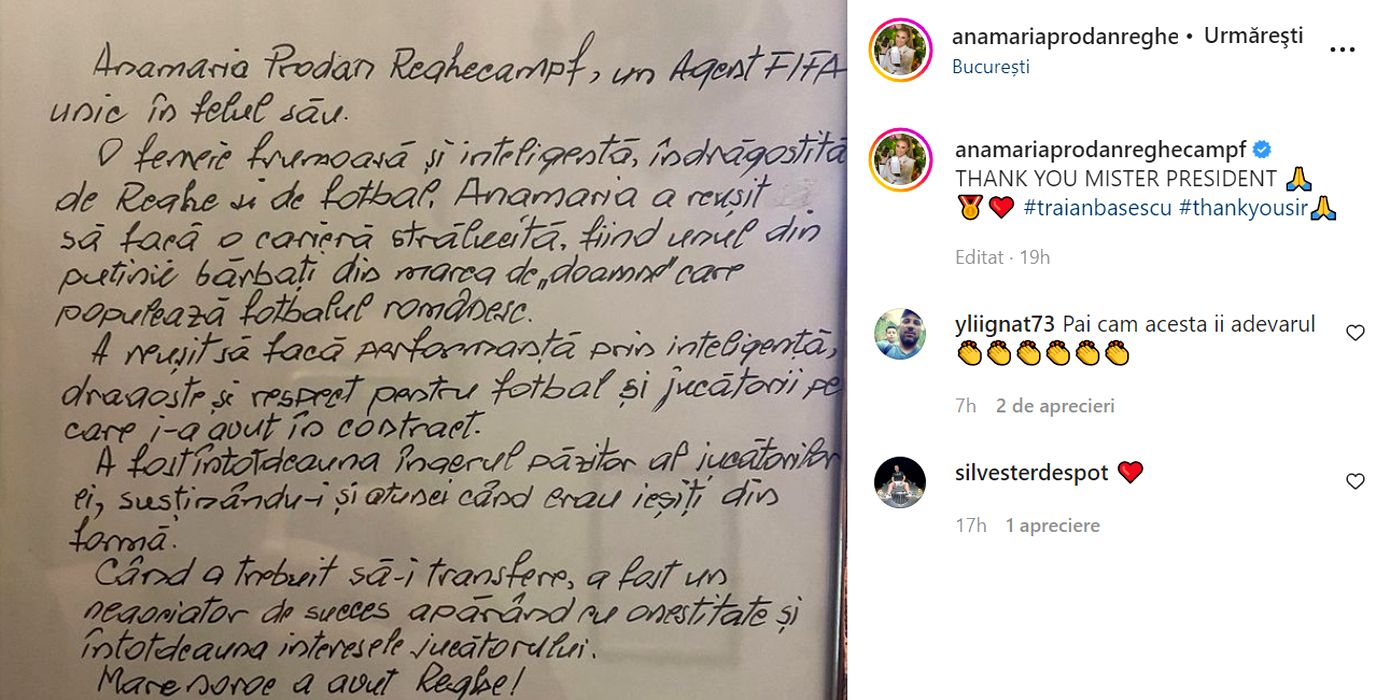 Anamaria Prodan Reghecampf, un Agent FIFA
unic în felul său.
O femeie frumoasă și inteligentă, îndrăgostită
de Reghe și de fotbal, Anamaria a reușit
să facă o carieră strălucită, fiind unul din
puținii bărbați din marea de „doamne" care
populează fotbalul românesc.
A reușit să facă performanță prin inteligență,
dragoste și respect pentru fotbal și jucătorii pe
care i-a avut în contract.
A fost întotdeauna îngerul păzitor al jucătorilor
ei, susținându-i și atunci când erau ieșiți din
formă.
Când a trebuit să-i transfere, a fost un
negociator de succes apărând cu onestitate și
întotdeauna interesele jucătorului.
Mare noroc a avut Reghe!
anamariaprodanreghe • Urmărești
București
anamariaprodanreghecampf
THANK YOU MISTER PRESIDENT 🙏
🏅❤️ #traianbasescu #thankyousir🙏
Editat · 19h
yliignat73 Pai cam acesta ii adevarul
👏👏👏👏👏👏
7h 2 de aprecieri
silvesterdespot ❤️
17h 1 apreciere